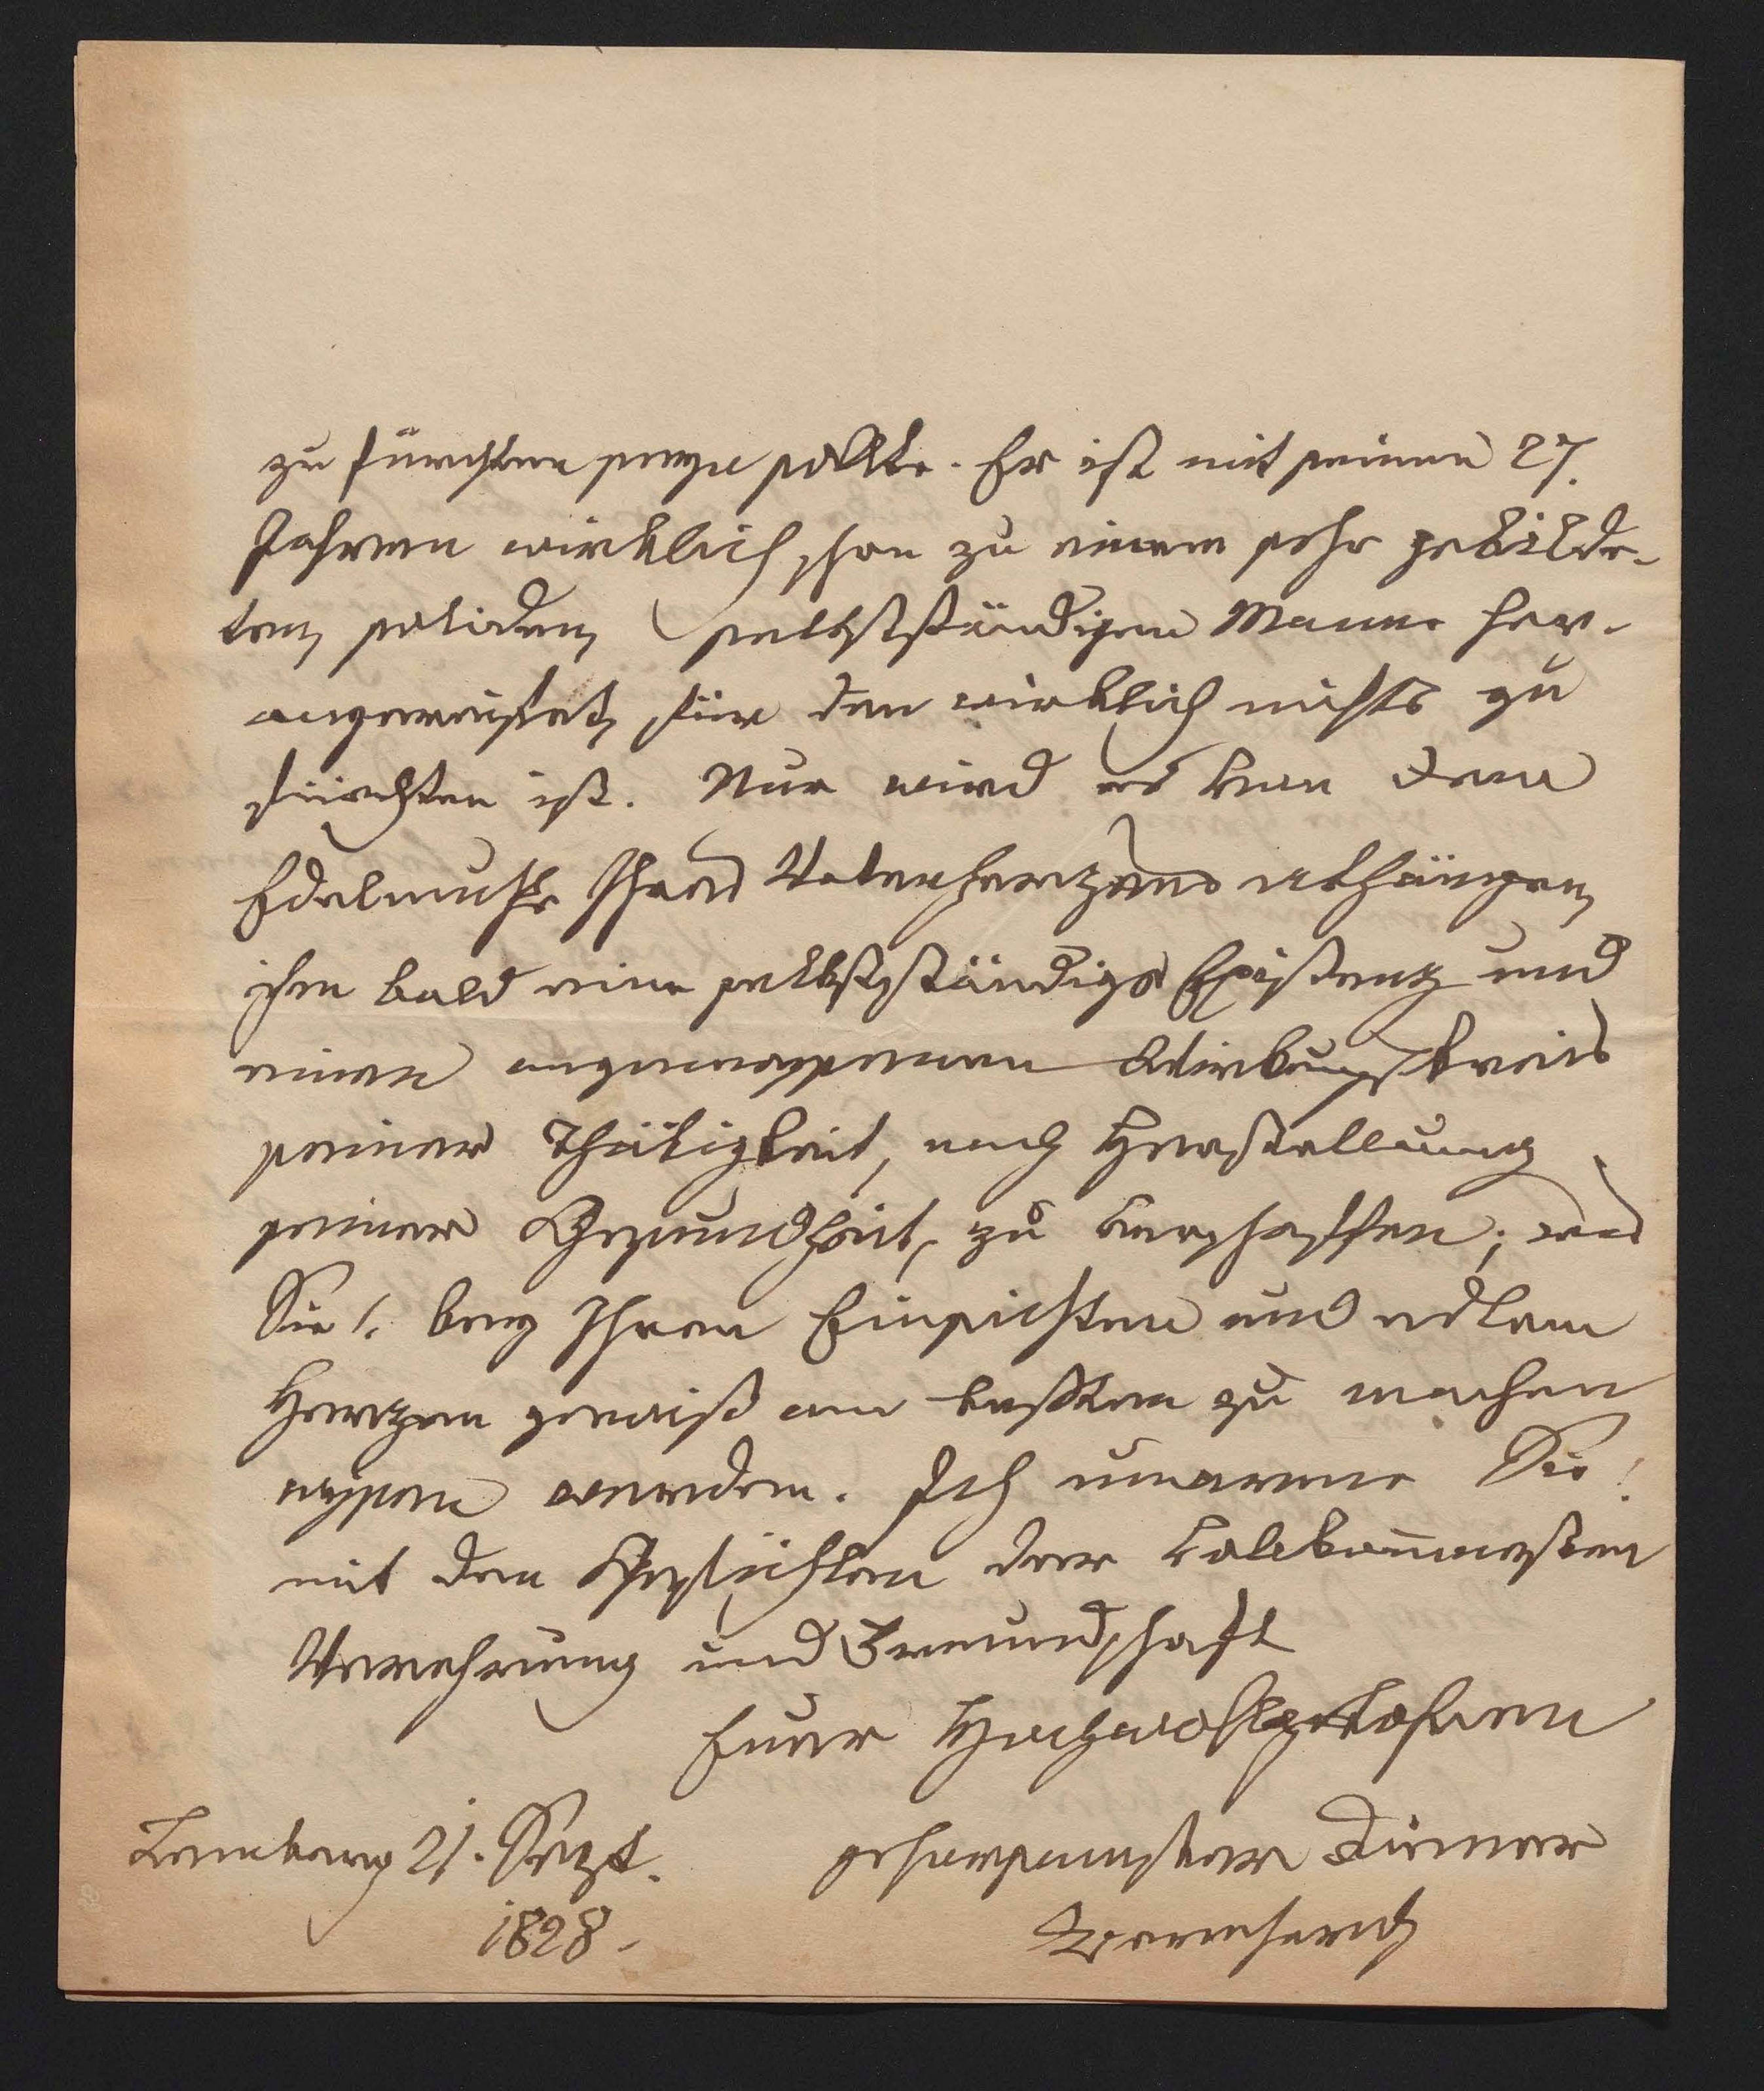 zu fürchten seyn sollte. Er ist mit seinen 27.
Jahren wirklich schon zu einem sehr gebilde-
ten, soliden, selbstständigen Manne her-
angereifet, für den wirklich nichts zu
fürchten ist. Nur wird es von dem
Edelmuthe Ihres Vaterherzens abhängen,
ihm bald eine selbstständige Existenz und
einen angemessenen Wirkungskreis
seiner Thätigkeit, nach Herstellung
seiner Gesundheit, zu verschaffen; was
Sie bey Ihren Einsichten und edlem
Herzen gewiß am besten zu machen
wissen werden. Ich umarme Sie!
mit den Gefühlen der vollkommensten
Verehrung und Freundschaft
Euer Hochwohlgebohren
Lemberg 21. Sept. gehorsamster Diener
1828.